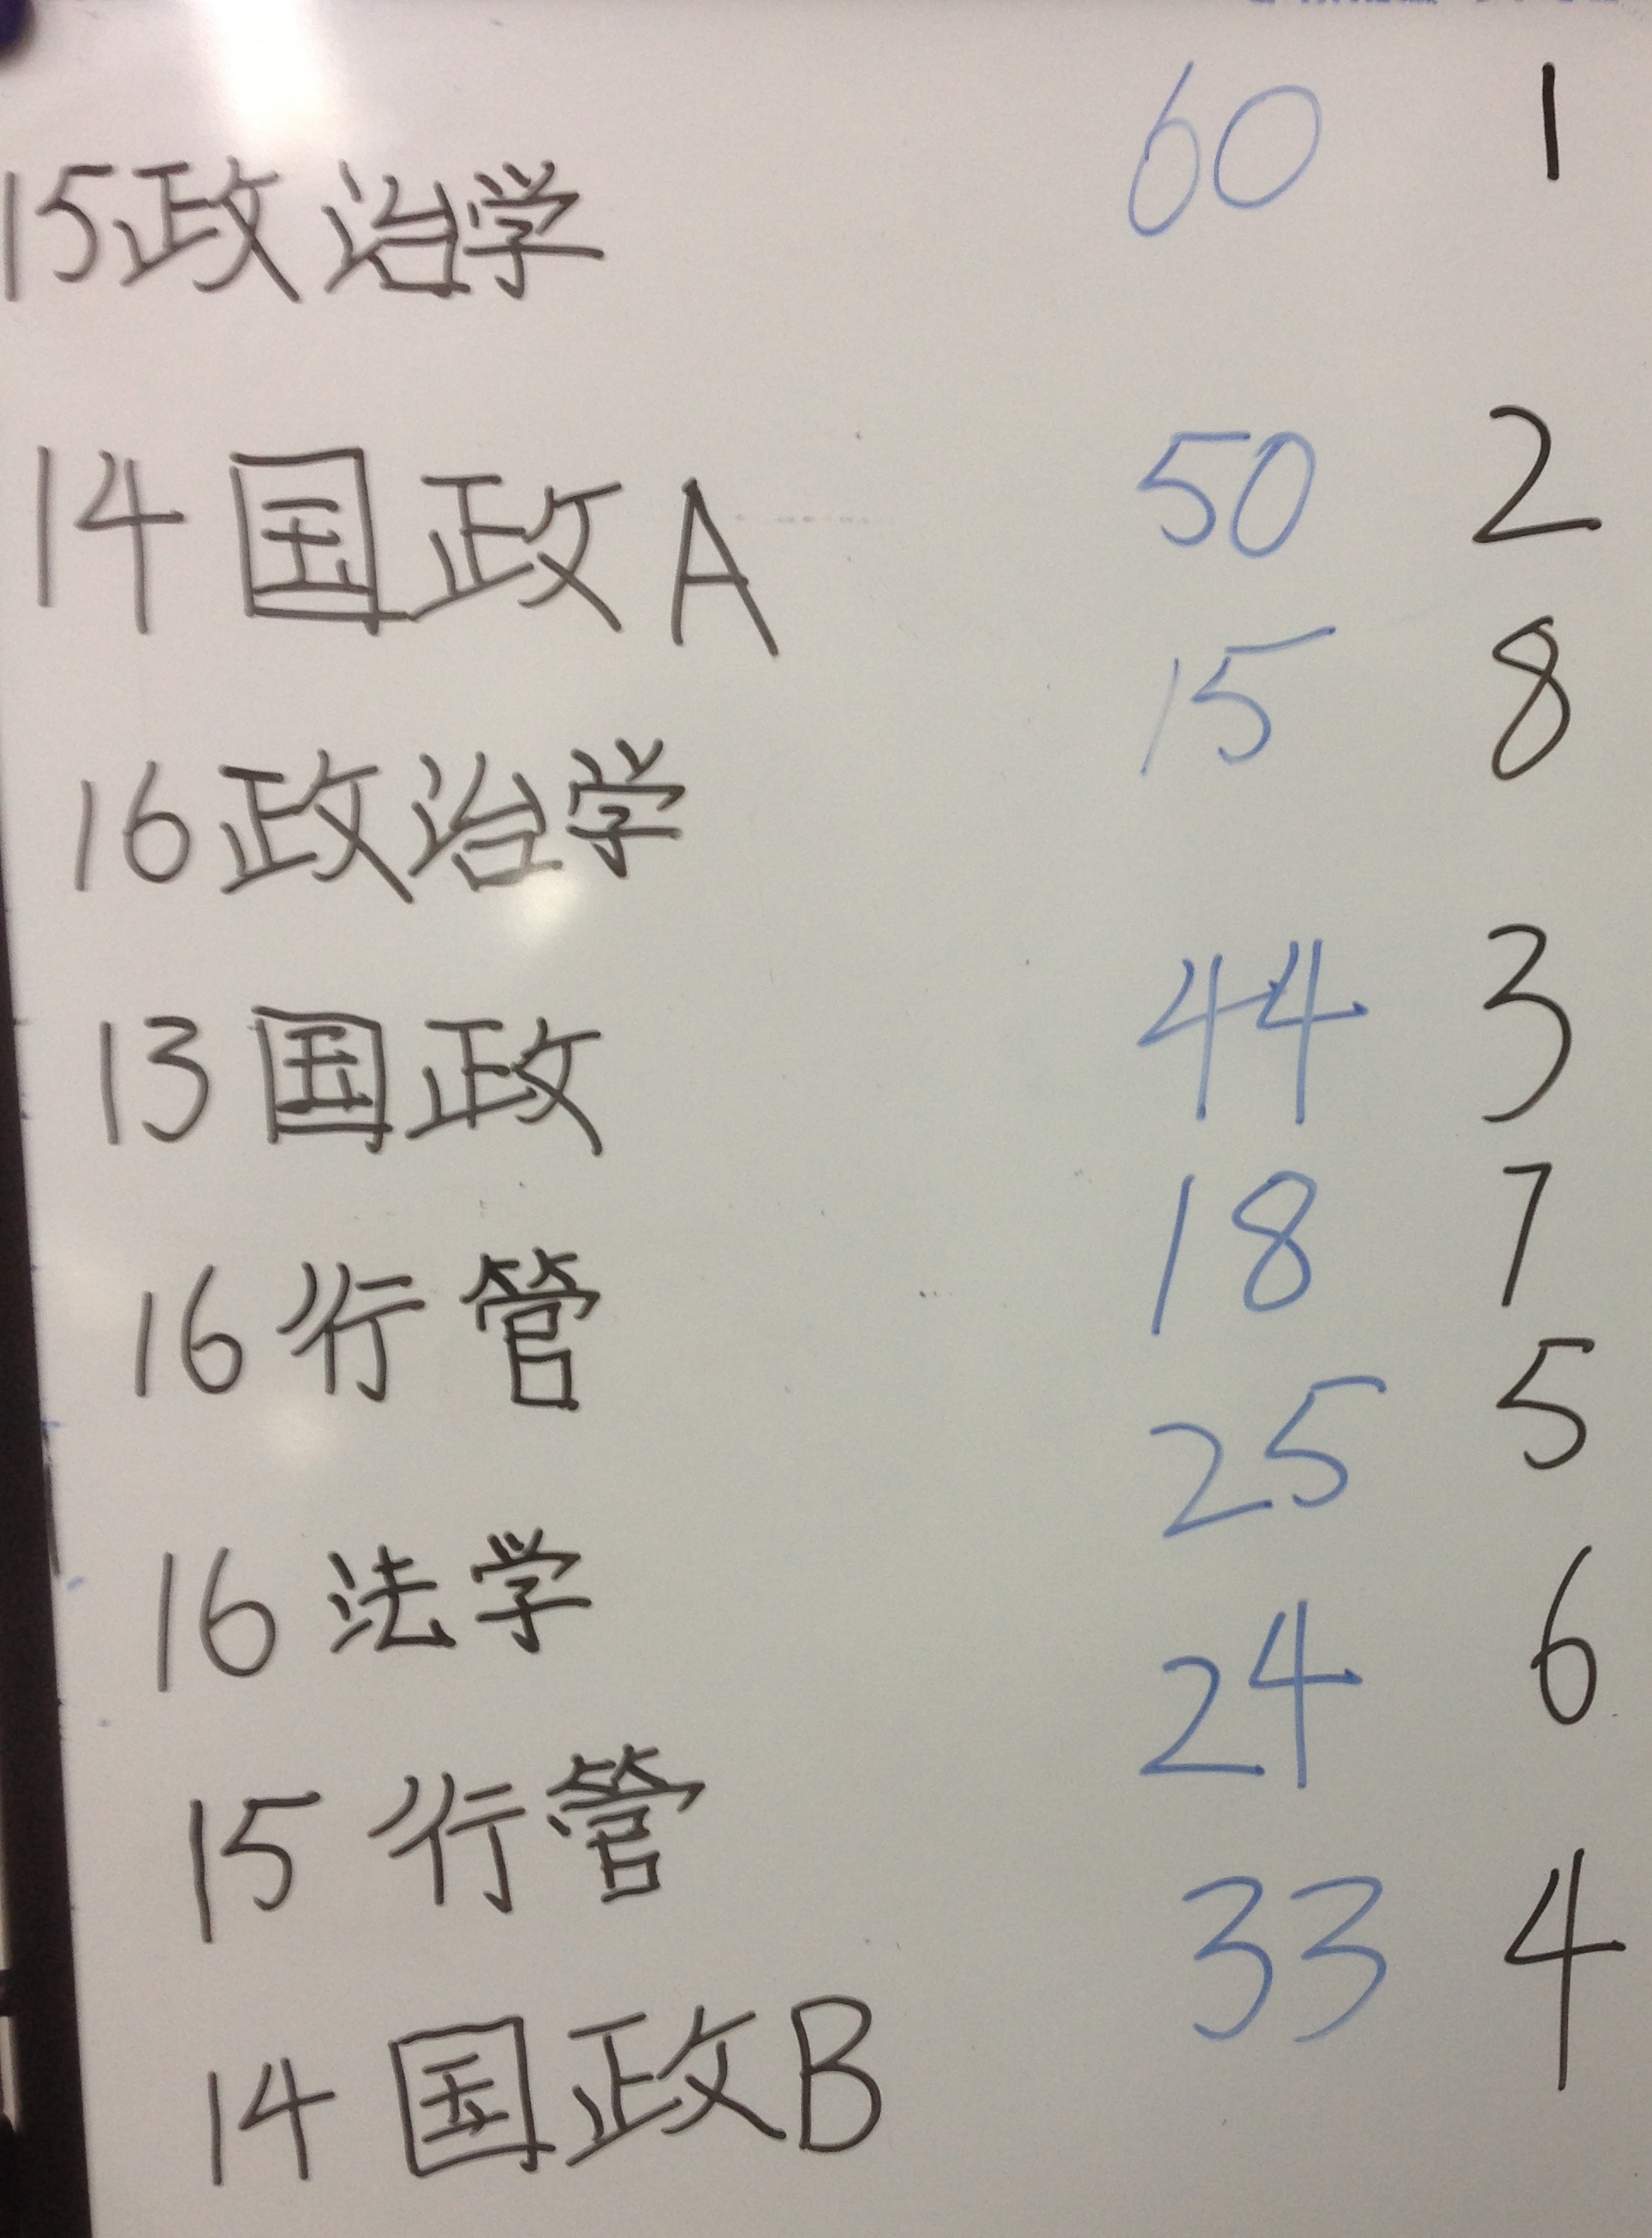 15政治学 60 1
14国政A 50 2
16政治学 15 8
13国政 44 3
16行管 18 7
16法学 25 5
15行管 24 6
14国政B 33 4